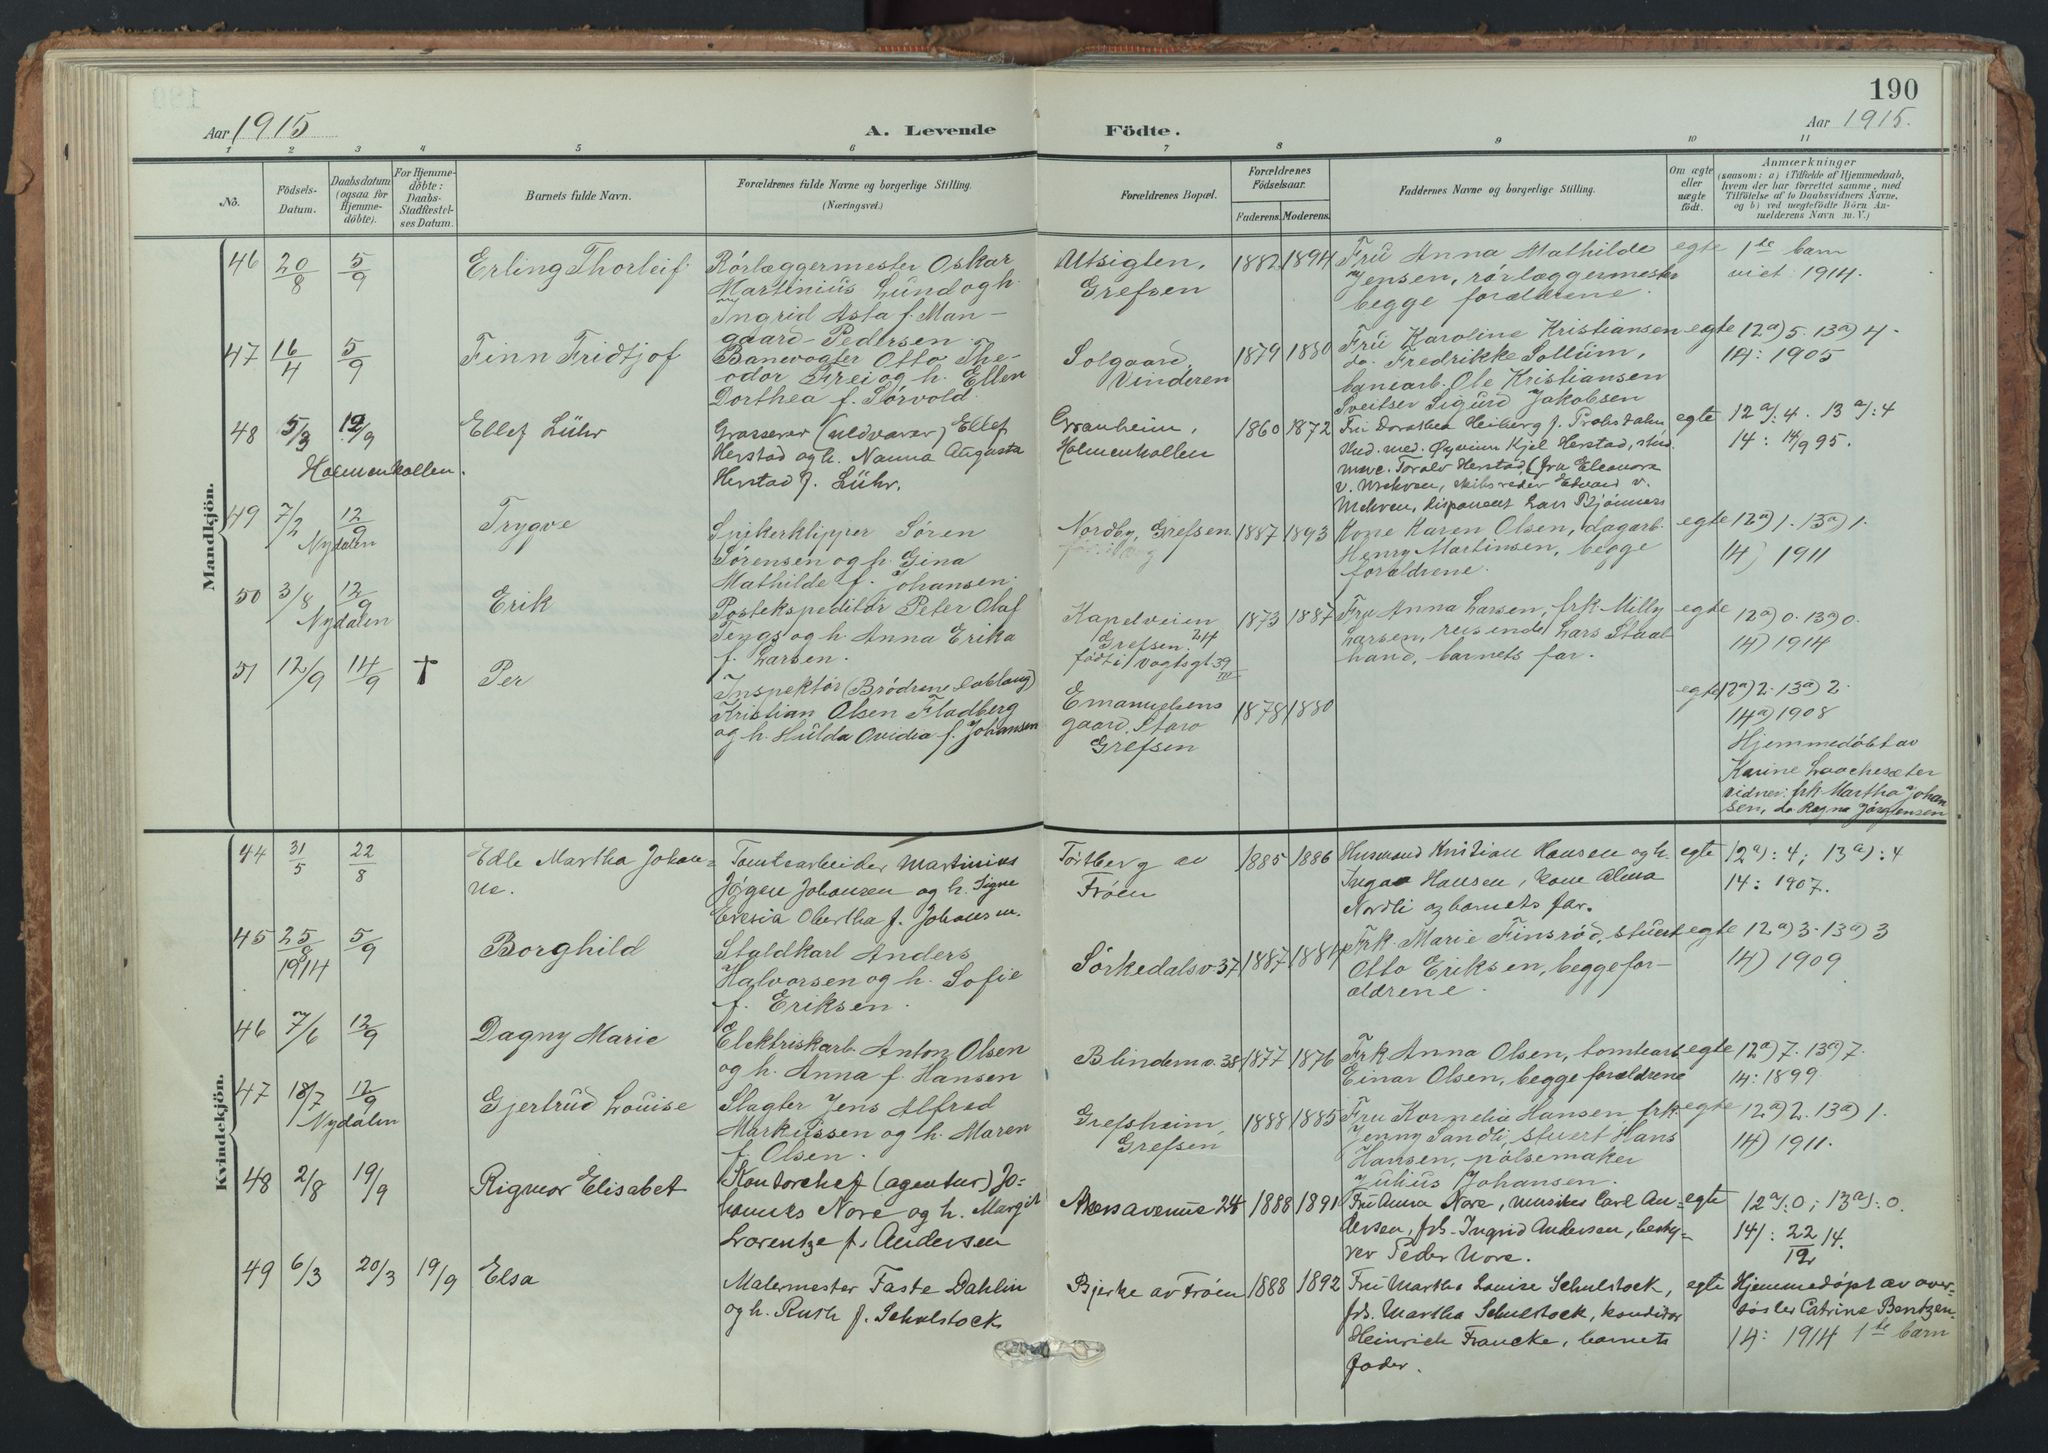 190
Aar 1915 A. Levende Födte. Aar 1915.
1 2 3 4 5 6 7 8 9 10 11
No. Födsels-Datum. Daabsdatum (ogsaa for Hjemmedöbte). For Hjemmedöbte: Daabs-Stadfæstelses Datum. Barnets fulde Navn. Forældrenes fulde Navne og borgerlige Stilling. (Næringsvei.) Forældrenes Bopæl. Forældrenes Födselsaar. Faderens. Moderens. Faddernes Navne og borgerlige Stilling. Om ægte eller uægte födt. Anmærkninger (saasom: a) i Tilfælde af Hjemmedaab, hvem der har forrettet samme, med Tilföielse af to Daabsvidners Navne, og b) ved uægtefödte Börn Anmelderens Navn m. V.)
Mandkjön.
46 20/8 5/9 Erling Thorleif. Rörlæggermester Oskar Utsigten, 1882 1894 Fru Anna Mathilde egte 1ste barn
Martinius Lund og h. Grefsen Jensen, rörlæggermester viet 1914.
Ingrid Asta f. Man- begge forældrene.
gaard-Pedersen
47 16/4 5/9 Finn Fridtjof Banevogter Otto The- Solgaard, 1879 1880 Fru Karoline Kristiansen egte 12a) 5. 13a) 4.
odor Frei og h. Ellen Vinderen do. Fredrikke Sollum, 14: 1905
Dorthea f. Sörvold. banearb. Ole Kristiansen
Sveitser Sigurd Jakobsen
48 5/3 19/9 Ellef Lühr Grosserer (uldvarer) Ellef Granheim, 1860 1872 Fru Dorothea Heiberg f. Probsdahn egte 12 a): 4. 13 a): 4
Holmenkollen. Herstad og h. Nanna Augusta Holmenkollen Stud. med. Øyvinn Kjel Herstad, stud. 14: 14/9 95.
Herstad f. Lühr. Toralv Herstad, (fru Eleonora
v. Mehren, skibsreder Edvard v.
Mehren, disponent Lars
49 7/2 12/9 Trygve Spikerklipper Sören Nordby, Grefsen 1887 1893 Kone Karen Olsen, dagarb. egte 12a) 1. 13a) 1.
Nydalen Sörensen og h. Gina Henry Martinsen, begge 14) 1911
Mathilde f. Johansen. forældrene.
50 3/8 12/9 Erik Postekspeditör Peter Olaf Kapelveien 1873 1887 Fru Anna Larsen, frk. Milly egte 12a) 0. 13a) 0.
Nydalen Tengs og h. Anna Erika Grefsen. 24 Larsen, reisende Lars Staal- 14) 1914
f. Larsen. födt i Vogtsgt 39 hand, barnets far.
51 12/9 14/9 † Per Inspektör (Brödrene Dobloug) Emanuelsens 1878 1880 egte 12a) 2. 13a) 2.
Kristian Olsen Fladberg gaard, Store 14a) 1908
og h. Hulda Ovidia f. Johansen Grefsen Hjemmedöbt av
Karine
vidner: frk. Martha Johan-
sen, do Ragna Jörgensen
Kvindekjön.
44 31/5 22/8 Edle Martha Johan- Tomtearbeider Martinius Törtberg av 1885 1886 Husmand Kristian Hansen og h. egte 12 a): 4; 13 a): 4
ne. Jørgen Johansen og h. Signe Frøen Inga Hansen, kone Alma 14: 1907.
Eresia Obertha f. Johansen. Nordli og barnets far.
45 25/9 1914 5/9 Borghild Staldkarl Anders Sörkedalsv. 37 1887 1884 Frk. Marie Finsröd, stuert egte 12a) 3. 13a) 3
Halvorsen og h. Sofie Otto Eriksen, begge for- 14) 1909
f. Eriksen. ældrene.
46 7/6 12/9 Dagny Marie Elektriskarb. Anton Olsen Blindernv. 38 1877 1876 Frk Anna Olsen, tomtearb. egte 12a) 7. 13a) 7.
og h. Anna f. Hansen Einar Olsen, begge forældrene 14: 1899
47 18/7 12/9 Gjertrud Louise Slagter Jens Alfred Grefsheim 1888 1885 Fru Kornelia Hansen frk. egte 12a) 2. 13a) 1.
Nydalen Markussen og h. Maren Grefsen Jenny Sandli, stuert Hans 14) 1911.
f. Olsen. Hansen, pölsemaker
Julius Johansen.
48 2/8 19/9 Rigmor Elisabet Kontorchef (agentur) Jo- Akersavenue 28 1888 1891 Fru Anna Nore, musiker Carl An- egte 12 a): 0; 13 a): 0.
hannes Nore og h. Margit dersen, frk. Ingrid Andersen, besty- 14): 22/12 14.
Lorentze f. Andersen rer Peder Nore.
49 6/3 20/3 19/9 Elsa Malermester Faste Dahlin Bjerke av Frøen 1888 1892 Fru Martha Louise Schulstock, egte Hjemmedøpt av over-
og h. Ruth f. Schulstock frk. Martha Schulstock, konditor søster Catrine Bentzen.
Heinrich Francke, barnets 14: 1914 1ste barn
fader.